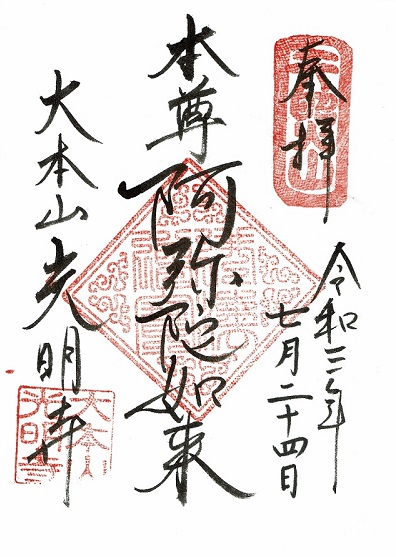 奉拝
令和三年
七月二十四日
本尊
阿弥陀如来
大本山光明寺
大本山
光明寺